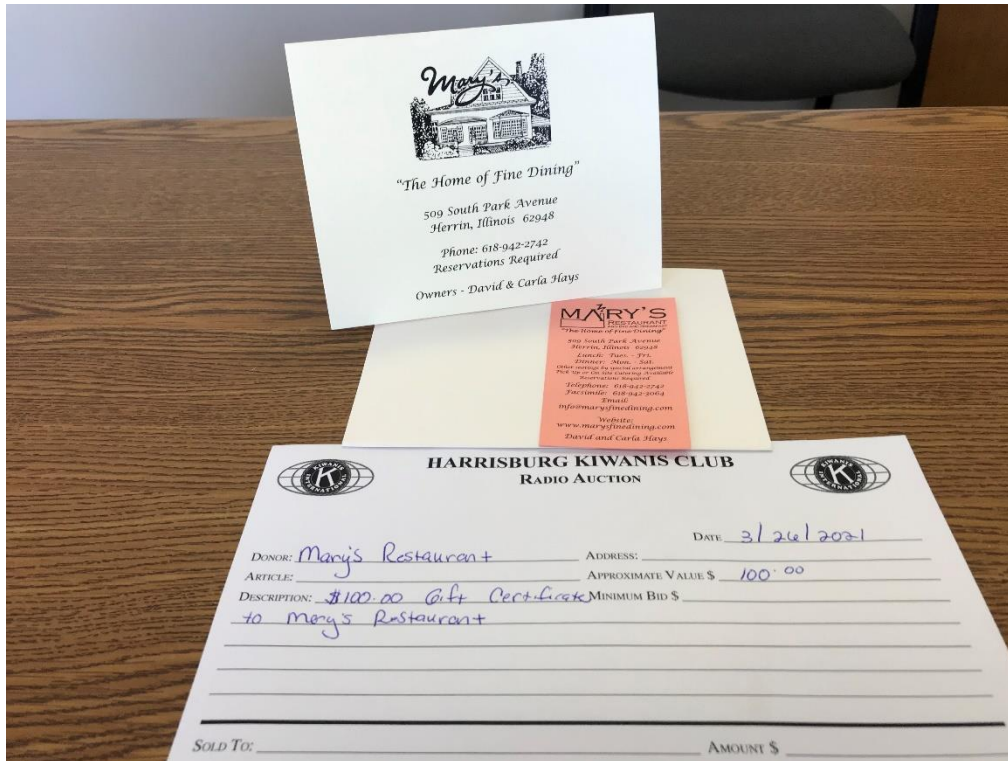 Mary's
"The Home of Fine Dining"
509 South Park Avenue
Herrin, Illinois 62948
Phone: 618-942-2742
Reservations Required
Owners - David & Carla Hays
MARY'S
RESTAURANT
"The Home of Fine Dining"
509 South Park Avenue
Herrin, Illinois 62948
Lunch: Tues. - Fri.
Dinner: Mon. - Sat.
Other seatings by special arrangement
Pick Up or On Site Catering Available
Reservations Required
Telephone: 618-942-2742
Facsimile: 618-942-3064
Email:
info@marysfinedining.com
Website:
www.marysfinedining.com
David and Carla Hays
HARRISBURG KIWANIS CLUB
RADIO AUCTION
KIWANIS K INTERNATIONAL
KIWANIS K INTERNATIONAL
DATE 3/26/2021
DONOR: Mary's Restaurant ADDRESS:
ARTICLE: APPROXIMATE VALUE $ 100.00
DESCRIPTION: $100.00 Gift Certificate MINIMUM BID $
to Mary's Restaurant
SOLD TO: AMOUNT $